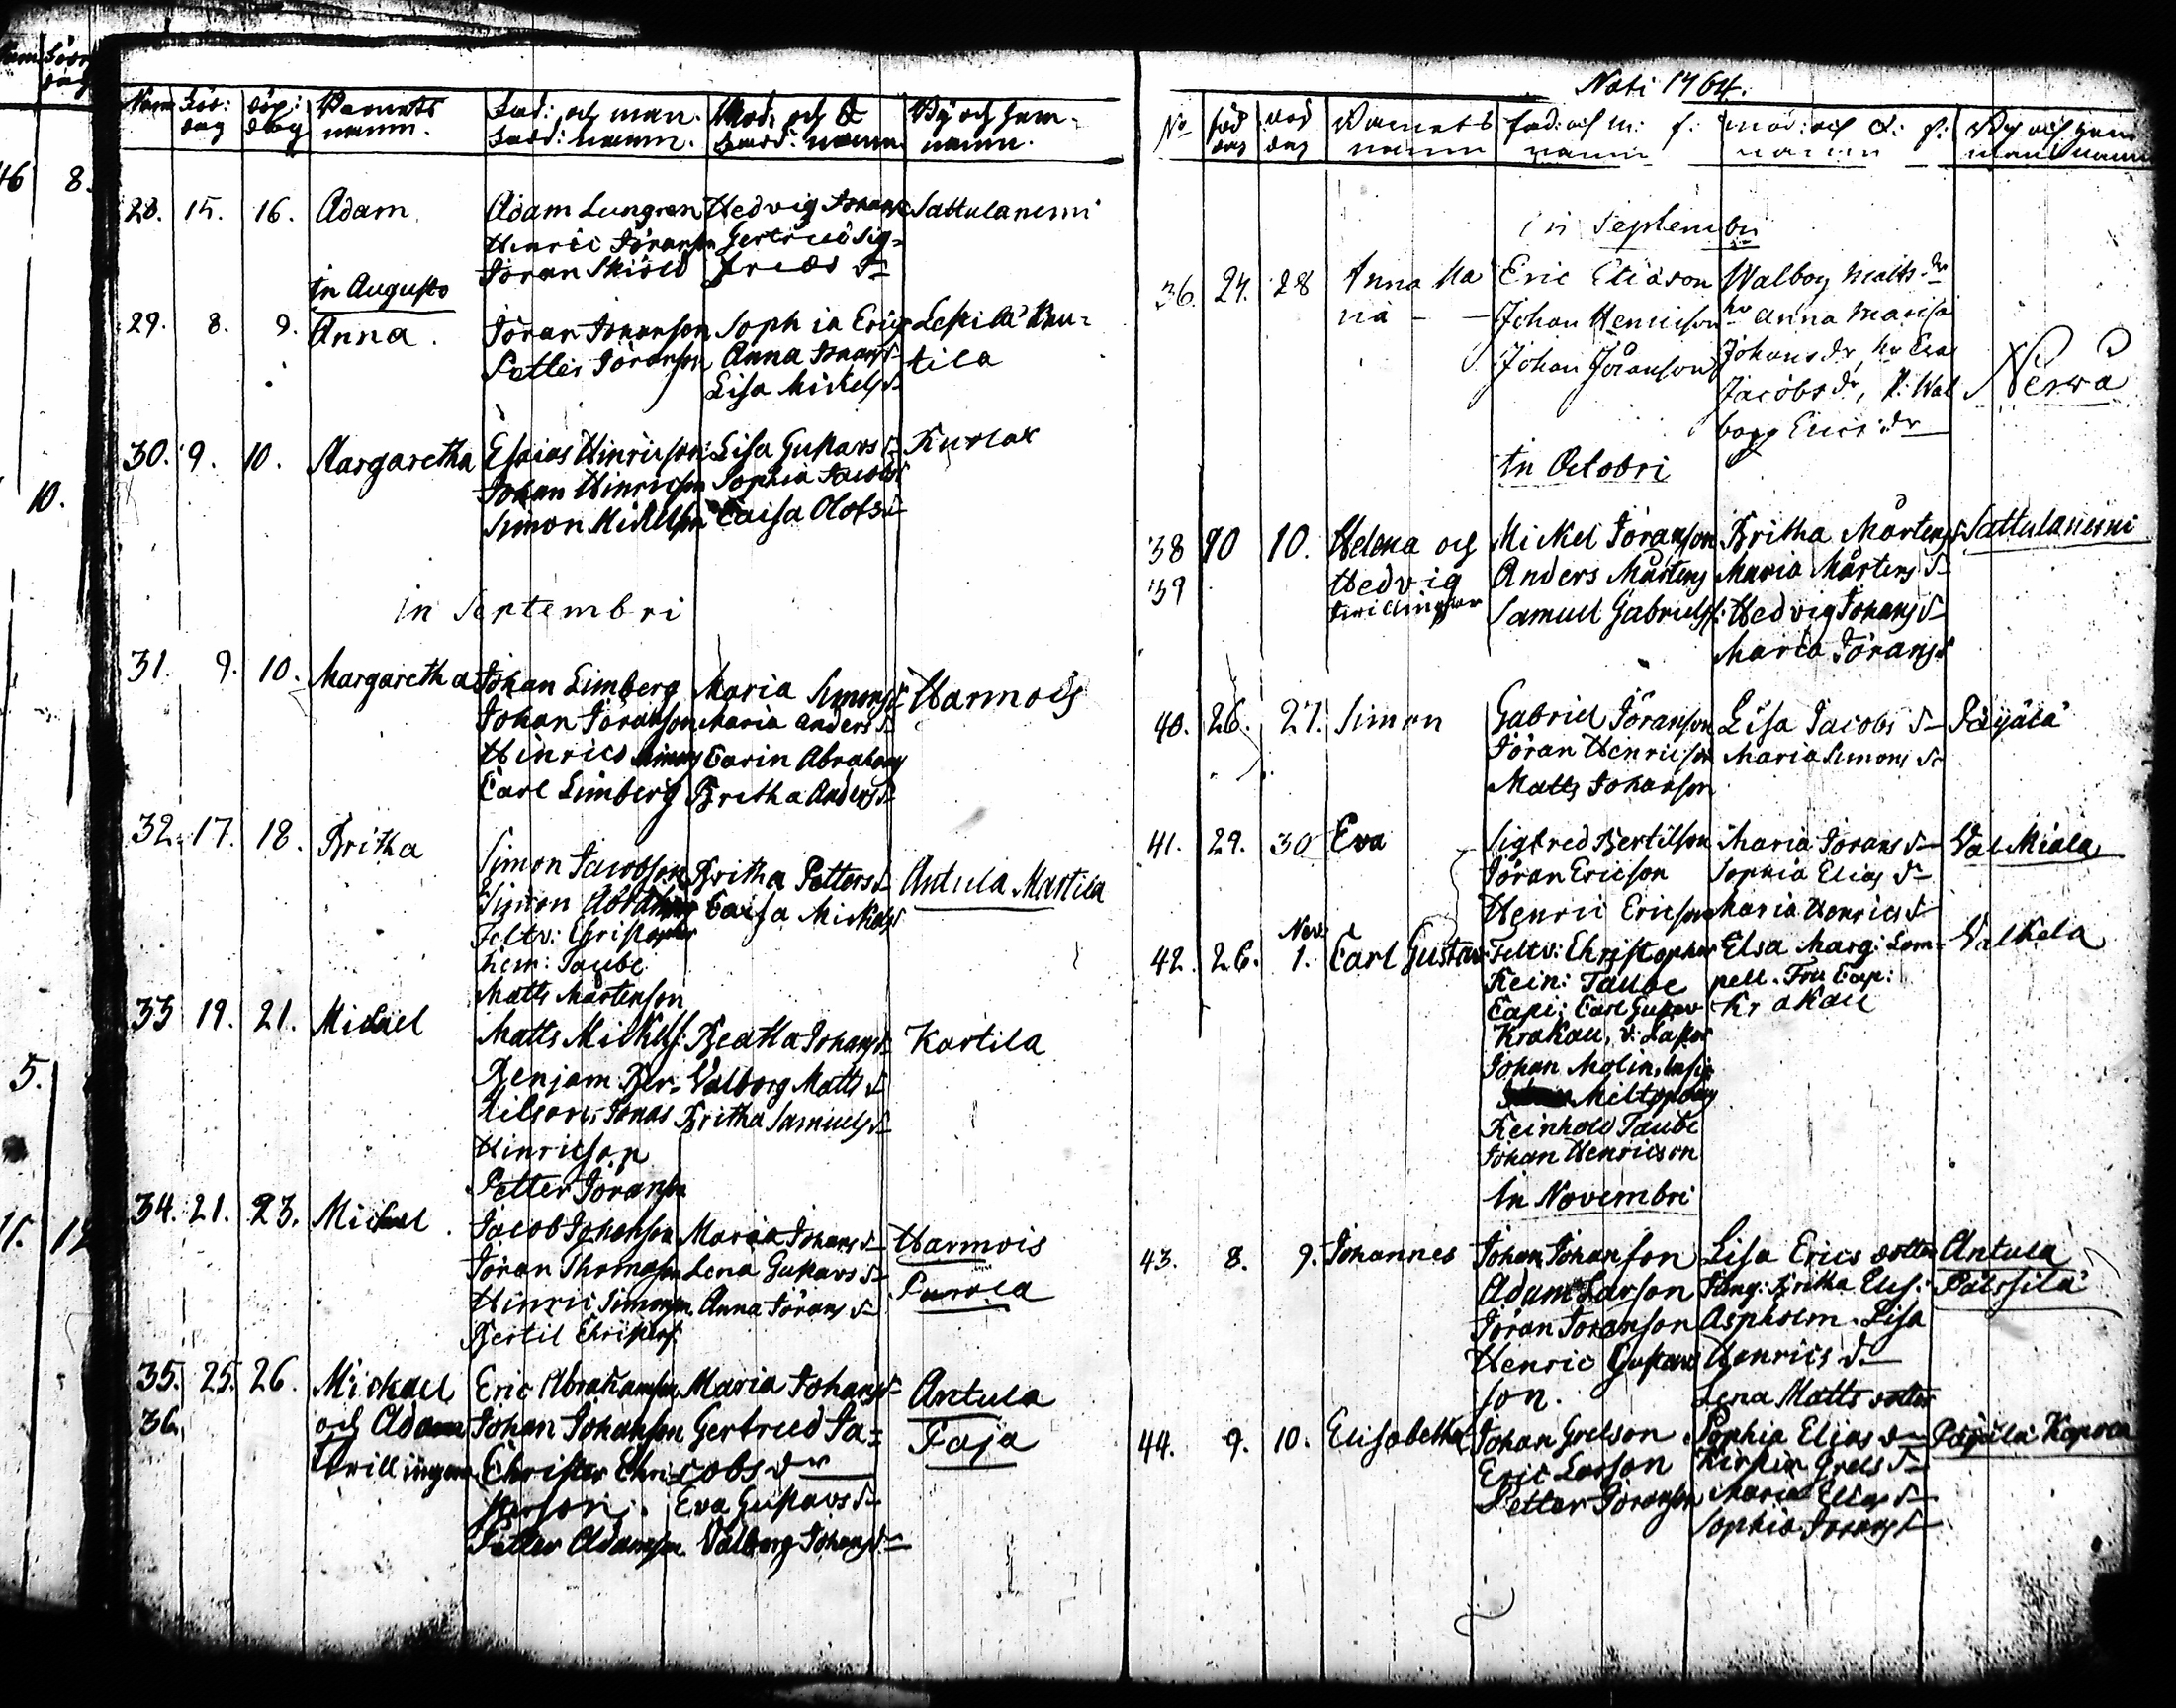 Num Föd: dag Döp: dag Barnets namn. Fad: och man. Fadd: namn. Mod: och Q Fadd: namn By och Hem- namn.
28. 15. 16. Adam. Adam Lungren Hedvig Johans Sattulanemi
Henric Jöranson Gertrud Sig=
Jöran Skiöld freds d-
In Augusto
29. 8. 9. Anna. Jöran Johanson Sophia Erics Lepilä
Petter Jöranson Anna Johans d- tila
Lisa Mickels d-
30. 9. 10. Margaretha Esaias Hinricson Lisa Gustavs d- Kuslax
Johan Hinricson Sophia Jacobs d
Simon Mickelson Caisa Olofs d-
in Septembri
31. 9. 10. Margaretha Johan Limberg Maria Simons d- Harmois
Johan Jöranson Maria Anders d-
Hinrics Simons Carin Abrahams
Carl Limberg Britha Anders d-
32. 17. 18. Britha Simon Jacobson Britha Petters d- Antula Martila
Simon Caisa Mickels d
Feltv: Christopher
Taube
Matts Mårtenson
33 19. 21. Michael Matts Mickels: Beatha Johans d- Kartila
Benjam Ber- Valborg Matts d-
tilson, Jonas Britha Samuels d-
Hinricson
Petter Jöranson
34. 21. 23. Michael. Jacob Johanson Maria Johans d- Harmois
Jöran Thomason Lena Gustavs d- Purola
Hinric Simonson Anna Jörans d-
Bertil Christers:
35. 25. 26. Mickael Eric Abrahamson Maria Johans d- Antula
36. och Adam Johan Johanson Gertrud Ja= Faja
Tvillingar Christer Chri= cobs dr
sterson. Eva Gustavs d-
Petter Adamson Valborg Johans d-
Nati 1764.
No föd dag död dag Barnets namn fad: och m: f: namn mod: och Q: f: namn By och hem mans namn
in Septembri
36. 24. 28 Anna Ma Eric Eliason Walborg Matts dr
ria - - Johan Henricson hu Anna Maria
Johan Jöranson Johans dr, hu Eva
Jacobs dr, P: Wal Nerva
borg Erics dr
In Octobri
38 10 10. Helena och Mickel Jöranson Britha Mårtens d Sattulanemi
39 Hedvig Anders Mårtens Maria Mårtens d-
tvillingar Samuel Gabriels: Hedvig Johans d-
Maria Jörans d
40. 26. 27. Simon Gabriel Jöranson Lisa Jacobs d- Päijälä
Jöran Henricson Maria Simons d-
Matts Johanson
41. 29. 30 Eva Sigfred Bertilson Maria Jörans d- Valkiala
Jöran Ericson Sophia Elias d-
Henric Ericson Maria Henrics d-
42. 26. Nov. 1. Carl Gustav Feltv: Christopher Elsa Marg: Lam- Valkela
Rein: Taube pell. Fru Cap:
Capi: Carl Gustav Krakau
Krakau, v: Pastor
Johan Molin,
Reinhold Taube
Johan Henricson
In Novembri
43. 8. 9. Johannes Johan Johanson Lisa Erics dotter Antula
Adam Larson Jung: Britha Elis: Pätsilä
Jöran Joranson Aspholm. Lisa
Henric Gustav Henrics d-
son. Lena Matts dotter
44. 9. 10. Elisabetha Johan Grelson Sophia Elias d- Päijälä
Eric Larson Kirstin Grels d-
Petter Joranson Maria Elias d-
Sophia Jörans d-